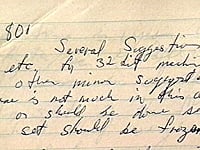 801
Several Suggestion
etc for 32 bit machin
other minor suggest
is not much in this a
or should be done
set should be frozen